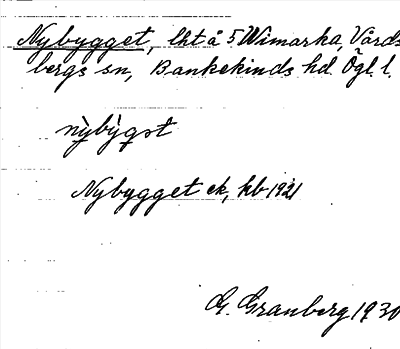 Nybygget, lht å 5 Wimarka, Vårds
bergs sn, Bankekinds hd. Ögl. l.
nỳbỳgət
Nybygget ek, kb 1921
G. Granberg 1930